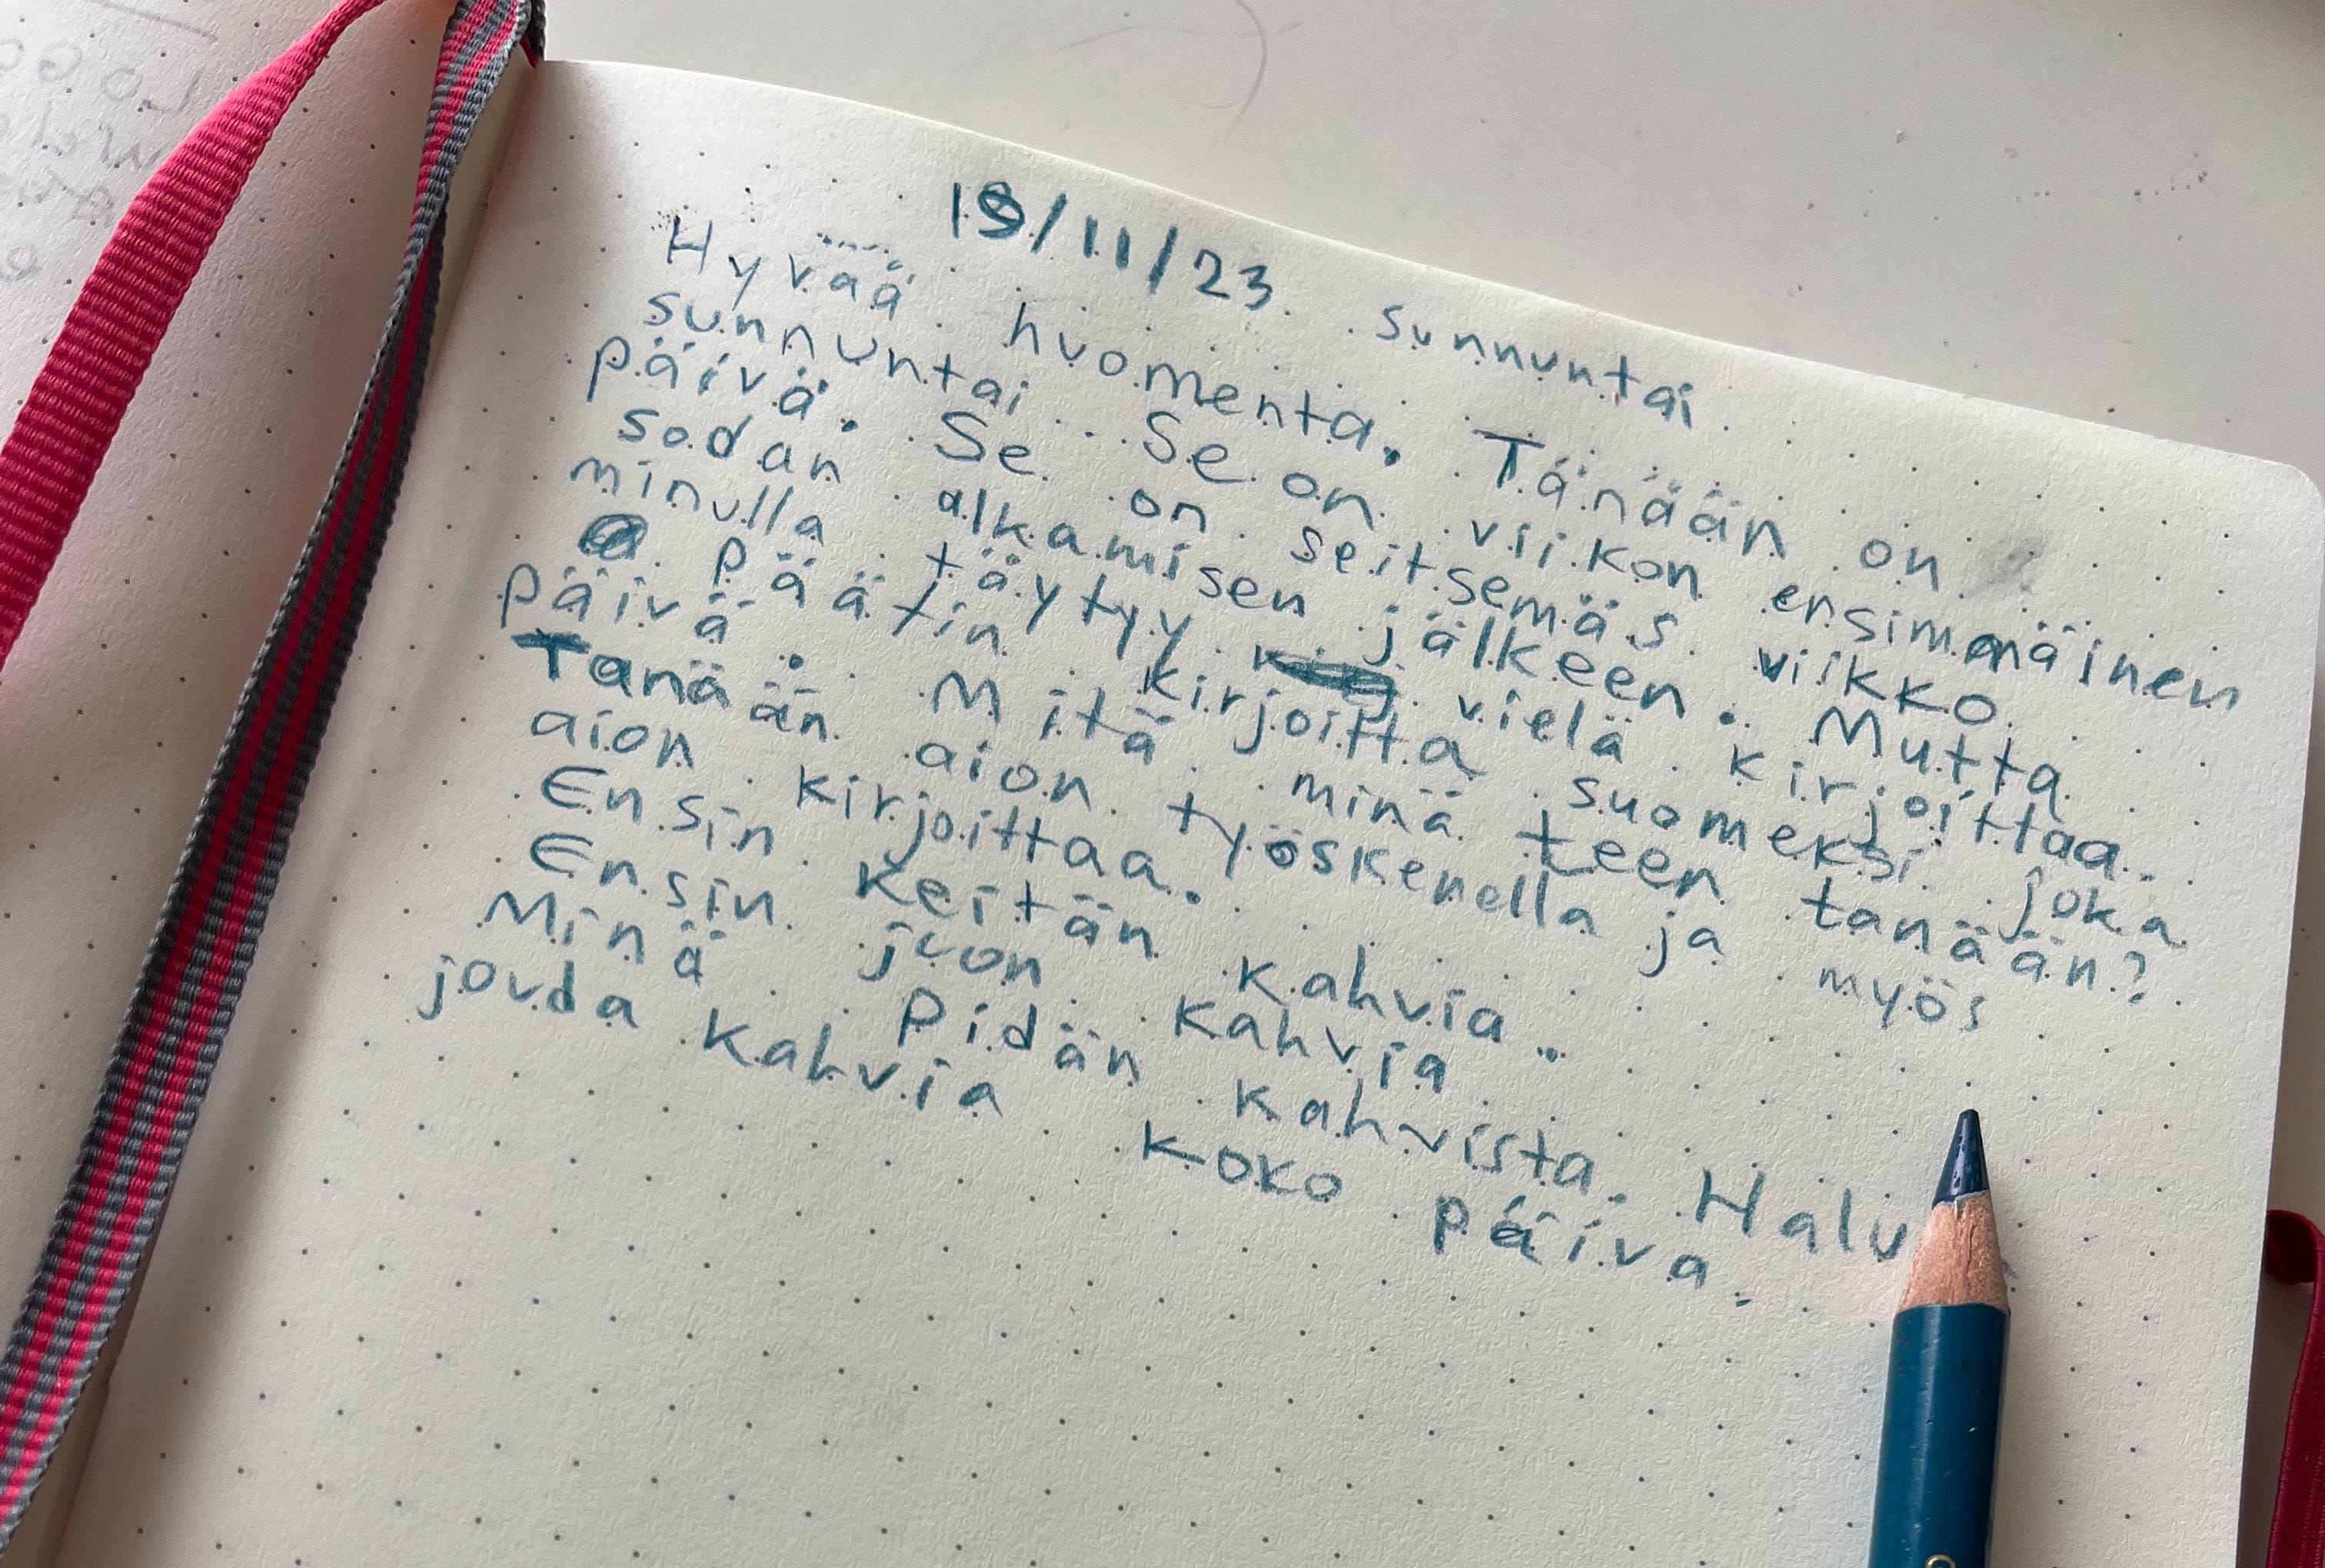 19/11/23 sunnuntai
Hyvää huomenta. Tänään on
sunnuntai Se on viikon ensimmäinen
päivä. Se on seitsemäs viikko
sodan alkamisen jälkeen. Mutta
minulla täytyy vielä kirjoittaa.
päätin kirjoitta suomeksi joka
päivä. Mitä minä teen tanään?
Tanään aion työskenella ja myös
aion kirjoittaa.
Ensin keitän kahvia.
Ensin juon kahvia
Minä pidän kahvista.
jouda kahvia koko päiva.